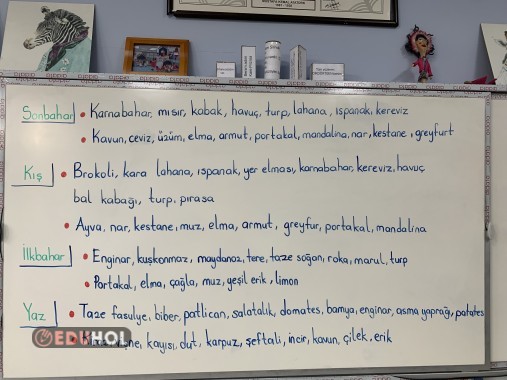 Sonbahar • Karnabahar, mısır, kabak, havuç, turp, lahana, ıspanak, kereviz
• Kavun, ceviz, üzüm, elma, armut, portakal, mandalina, nar, kestane, greyfurt
Kış • Brokoli, kara lahana, ıspanak, yer elması, karnabahar, kereviz, havuç
bal kabağı, turp, pırasa
• Ayva, nar, kestane, muz, elma, armut, greyfur, portakal, mandalina
İlkbahar • Enginar, kuşkonmaz, maydanoz, tere, taze soğan, roka, marul, turp
• Portakal, elma, çağla, muz, yeşil erik, limon
Yaz • Taze fasulye, biber, patlıcan, salatalık, domates, bamya, enginar, asma yaprağı, patates
EDKHOL
kayısı, dut, karpuz, şeftali, incir, kavun, çilek, erik